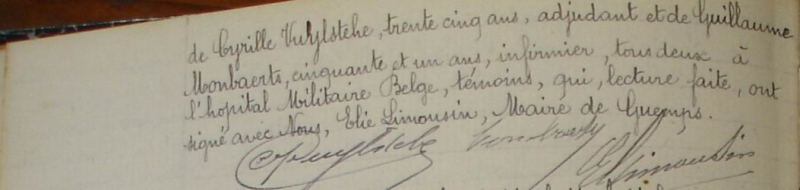 de Cyrille Vuylsteke, trente cinq ans, adjudant et de Guillaume
Monbaerts, cinquante et un ans, infirmier, tous deux à
l'hopital Militaire Belge, témoins, qui, lecture faite, ont
signé avec Nous, Elie Limousin, Maire de Guemps.
CVuylsteke Monbaerts Limousin